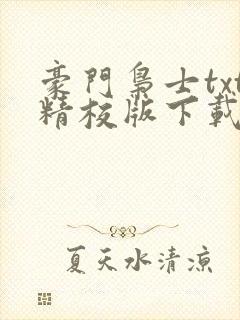 豪門梟士txt
精校版下載
夏天水清涼